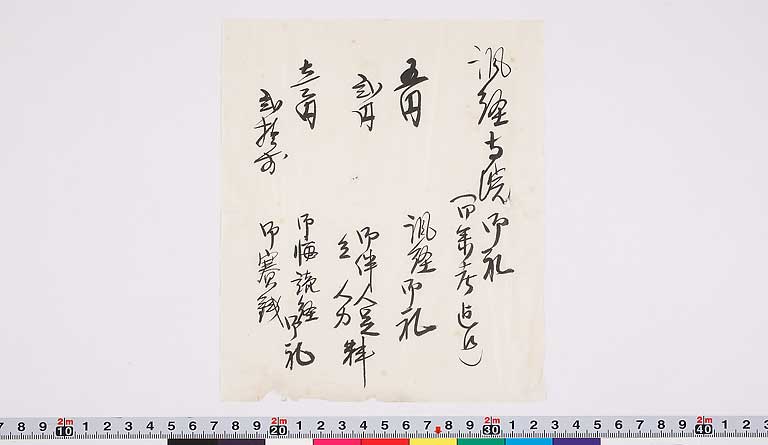 諷経寺院御礼
五円
諷経御礼
弐円
御伴人足料
人力
壱円
御悔読経御礼
弐拾銭
御賽銭
7 8 9 10 1 2 3 4 5 6 7 8 9 20 1 2 3 4 5 6 7 8 9 30 1 2 3 4 5 6 7 8 9 40 1 2
2m 2m 2m 2m